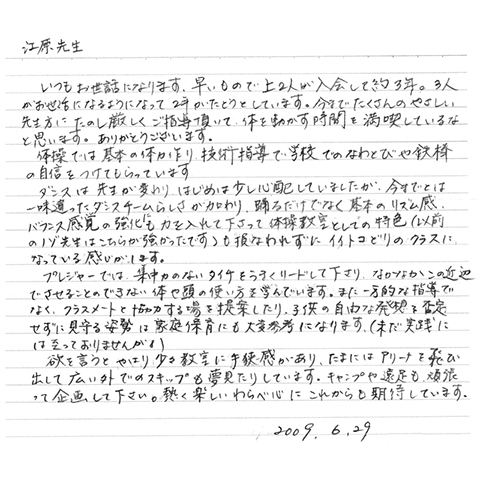 江原先生
いつもお世話になります。早いもので上2人が入会して約3年。3人
がお世話になるようになって2年がたとうとしています。今までたくさんのやさしい
先生方にたのし厳しくご指導頂いて、体を動かす時間を満喫しているな
と思います。ありがとうございます。
体操では基本の体力作り、技術指導で学校でのなわとびや鉄棒
の自信をつけてもらっています
ダンスは先生が変わり、はじめは少し心配していましたが、今までとは
一味違ったダンスチームらしさが加わり、踊るだけでなく基本のリズム感、
バランス感覚の強化にも力を入れて下さって体操教室としての特色(以前
の先生はこちらが強かったです)も損なわれずにイイトコどりのクラスに
なっている感じがします。
プレジャーでは、集中力のないタイチをうまくリードして下さり、なかなかこの近辺
でさせることのできない体や頭の使い方を学んでいます。また一方的な指導で
なく、クラスメートと協力する場を提案したり、子供の自由な発想を否定
せずに見守る姿勢は家庭保育にも大変参考になります。(未だ実践に
は至っておりませんが!)
欲を言うとやはり少々教室に手狭感があり、たまにはアリーナを飛び
出して広い外でのスキップも夢見たりしています。キャンプや遠足も頑張
って企画して下さい。熱く楽しいわらべ心にこれからも期待しています。
2009. 6. 29